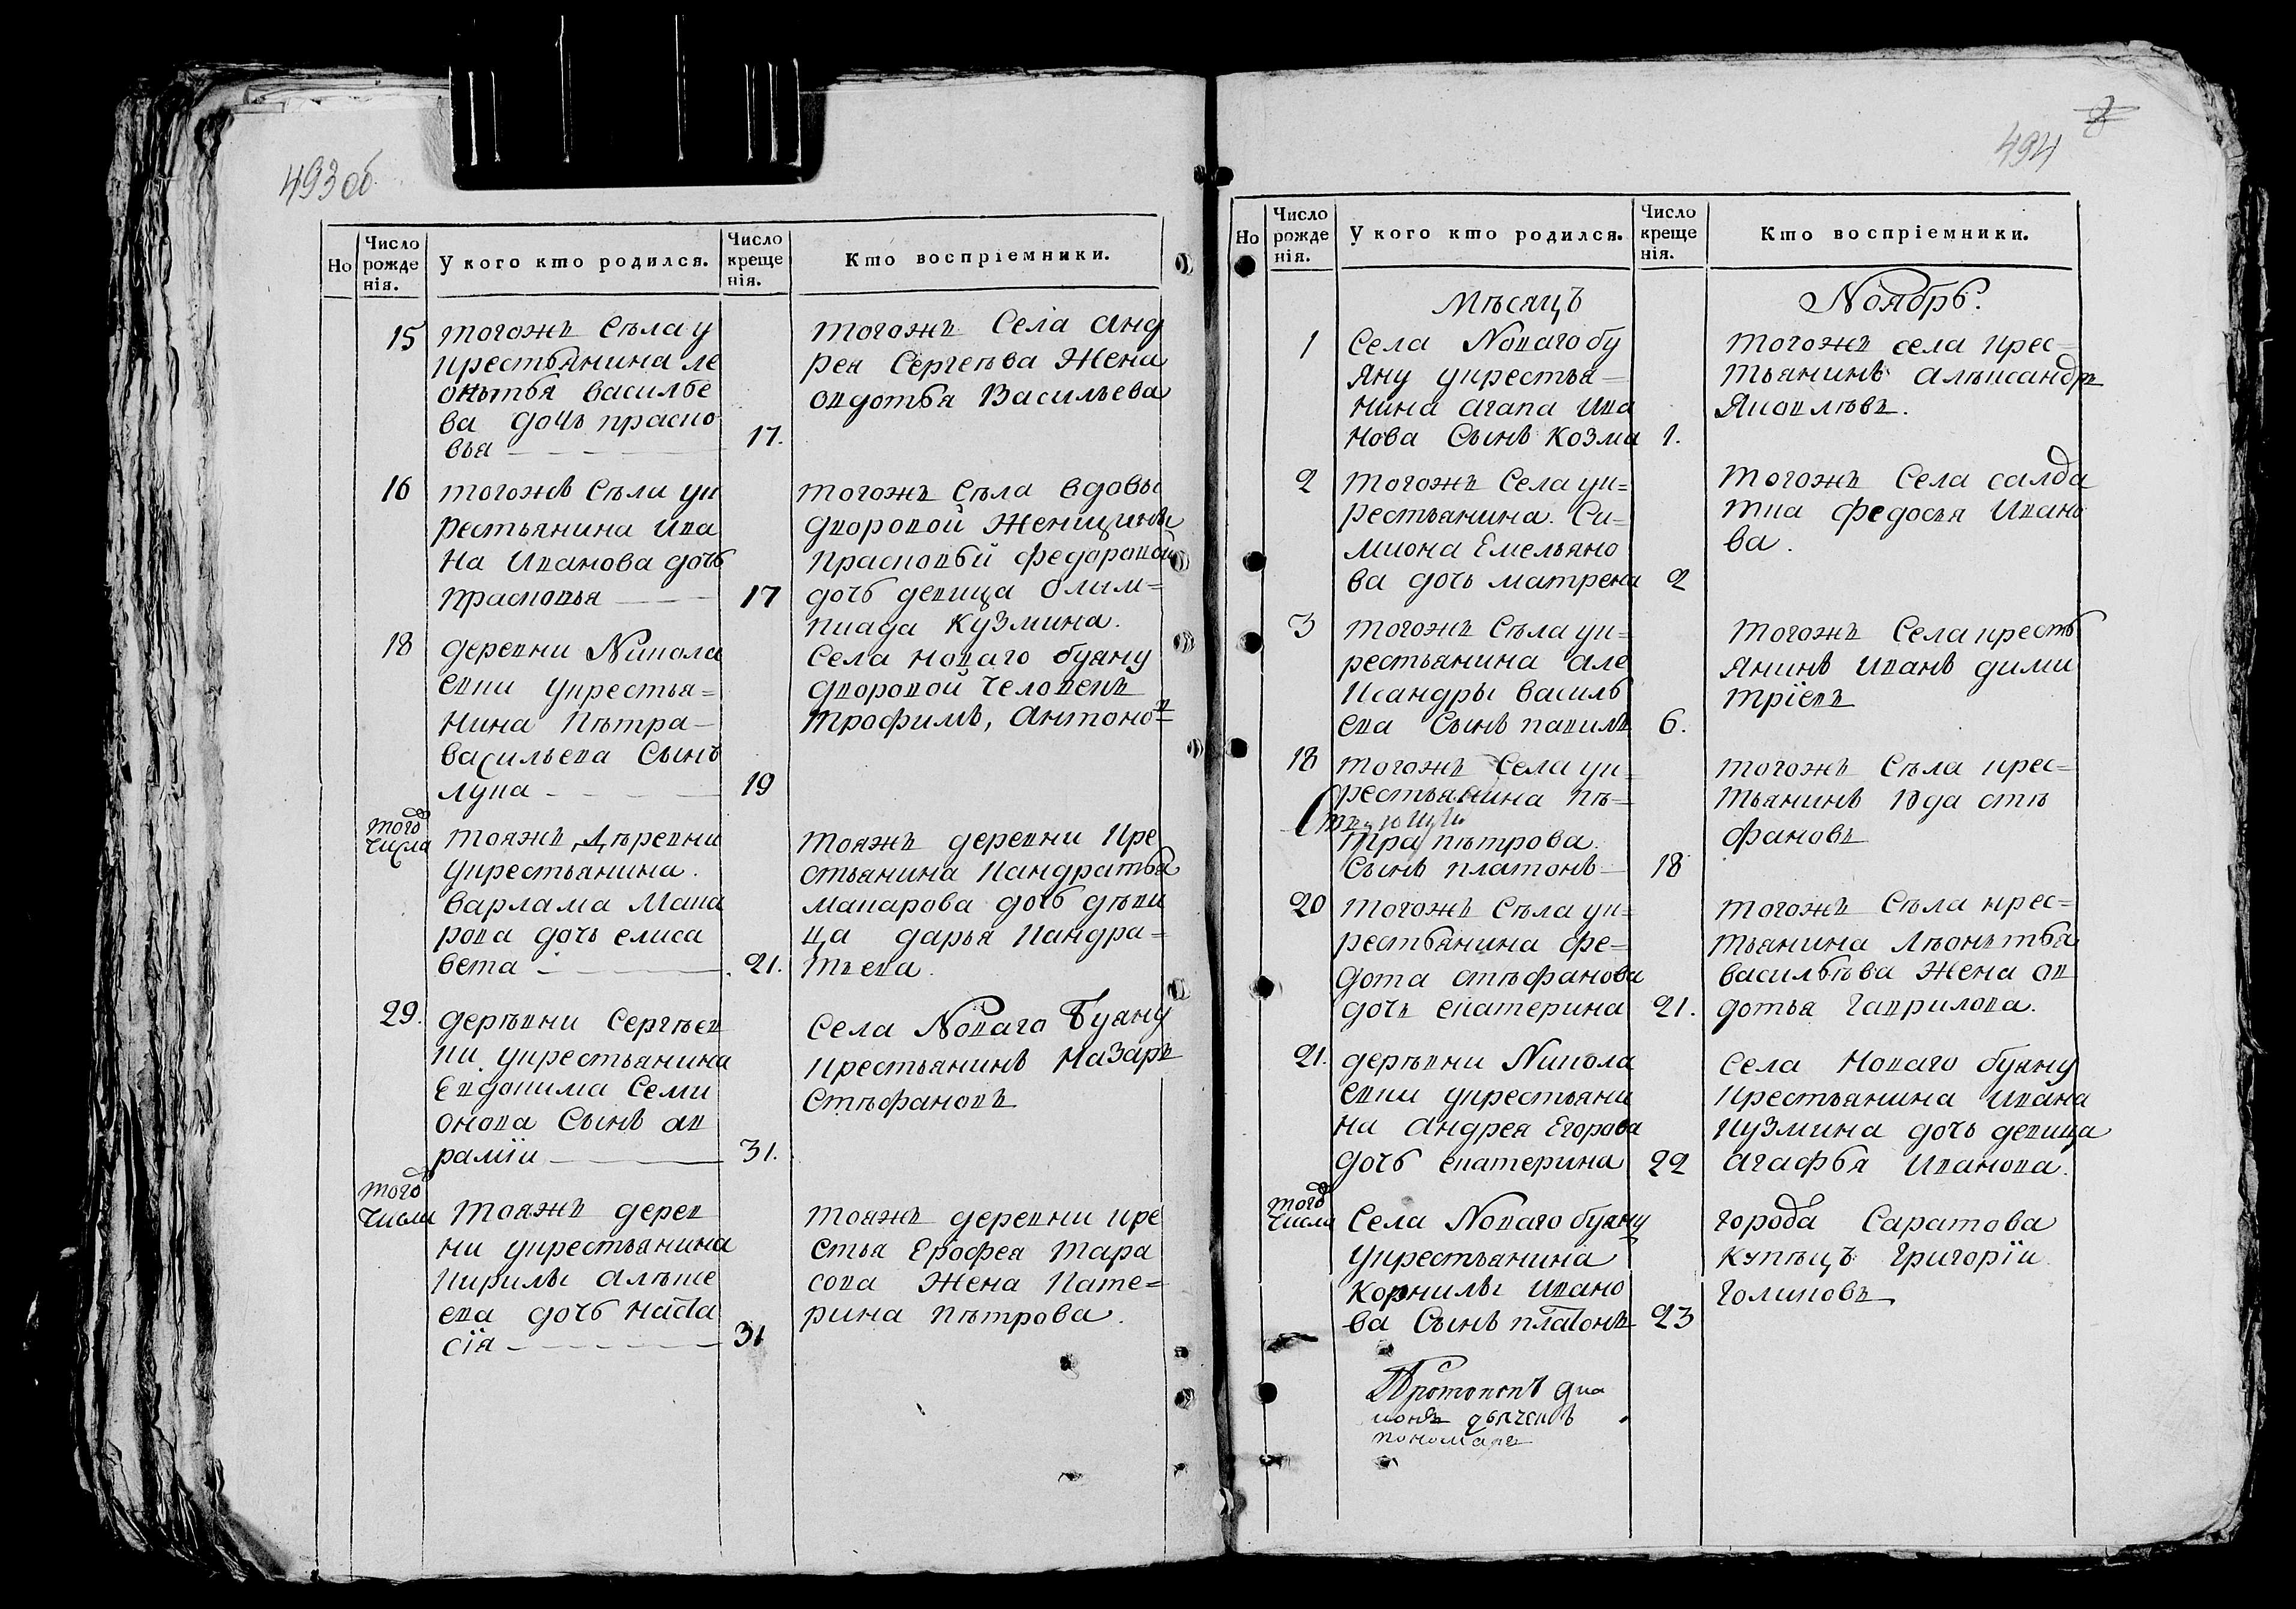 493 об.
Но
Число рожде нія.
У кого кто родился.
Число креще нія.
Кто воспріемники.
15
тогожъСѣла у
крестьянина ле
онътья васильѣ
ва дочь праско
вья
17.
тогожъ Села анд
рея Сергѣева Жена
овдотья Васильева
16
тогожъ Сѣла ук
рестьянина ива
на Иванова дочь
Прасковья
17
тогожъ Сѣла вдовы
дворовой Женщины
Прасковьи федоровой
дочь девица олим=
пиада Кузмина.
18
деревни Никола
евки укрестья=
нина Пѣтра
васильева Сынъ
лука
19
Села новаго буяну
дворовой человекъ
трофимъ, антоновъ
того числа
тояжъ Дѣревни
укрестьянина.
варлама Мака
рова дочь елиса
вета
21.
тояжъ деревни кре
стьянина Кандратья
макарова дочь дѣви
ца дарья Кандра=
тьева.
29.
дерѣвни Сергѣев
ки укрестьянина
Евдокима Семи
онова Сынъ ав
рамїи
31.
Села Новаго Буяну
крестьянинъ Назаръ
Стѣфановъ
того числа
тояжъ дерев
ни укрестьянина
Кирилы алѣксе
ева дочь наста
сїя
31
тояжъ деревни кре
стья Ерофея тара
сова Жена Кате=
рина Пѣтрова.
494
Но
Число рожде нія.
У кого кто родился.
Число креще нія.
Кто воспріемники.
Мѣсяцъ
Ноябрь.
1
Села Новаго бу
яну укрестья=
нина агапа ива
нова Сынъ козма
1.
тогожъ села крес=
тьянинъ алѣксандръ
Яковлѣвъ.
2
тогожъ Села ук=
рестьянина. Си=
миона Емельяно
ва дочь матрена
2
тогожъ Села салда
тка федосья Ивано
ва.
3
тогожъ Сѣла ук=
рестьянина але
ксандры василь
ева Сынъ павилъ
6.
тогожъ Села кресть
янинъ иванъ дими
трїевъ
18
тогожъ Села ук=
рестьянина пѣ=
тра пѣтрова.
Сынъ платонъ
18
тогожъ Сѣла крес=
тьянинъ
стѣ
фановъ
20
тогожъ Сѣла ук=
рестьянина фе=
дота стѣфанова
дочь екатерина
21.
тогожъ Сѣла крес=
тьянина Лѣонътья
васильѣва Жена ов
дотья гаврилова.
21.
дерѣвни Никола
евки укрестьяни
на Андрея Егорова
дочь екатерина
22
Села Новаго буяну
Крестьянина ивана
кузмина дочь девица
агафья Иванова.
того числа
Села Новаго буяну
укрестьянина
корнилы ивано
ва Сынъ платонъ
23
города Саратова
купѣцъ григорїи
голиковъ
Протопопъ диа
конъ дьячекъ
пономарь